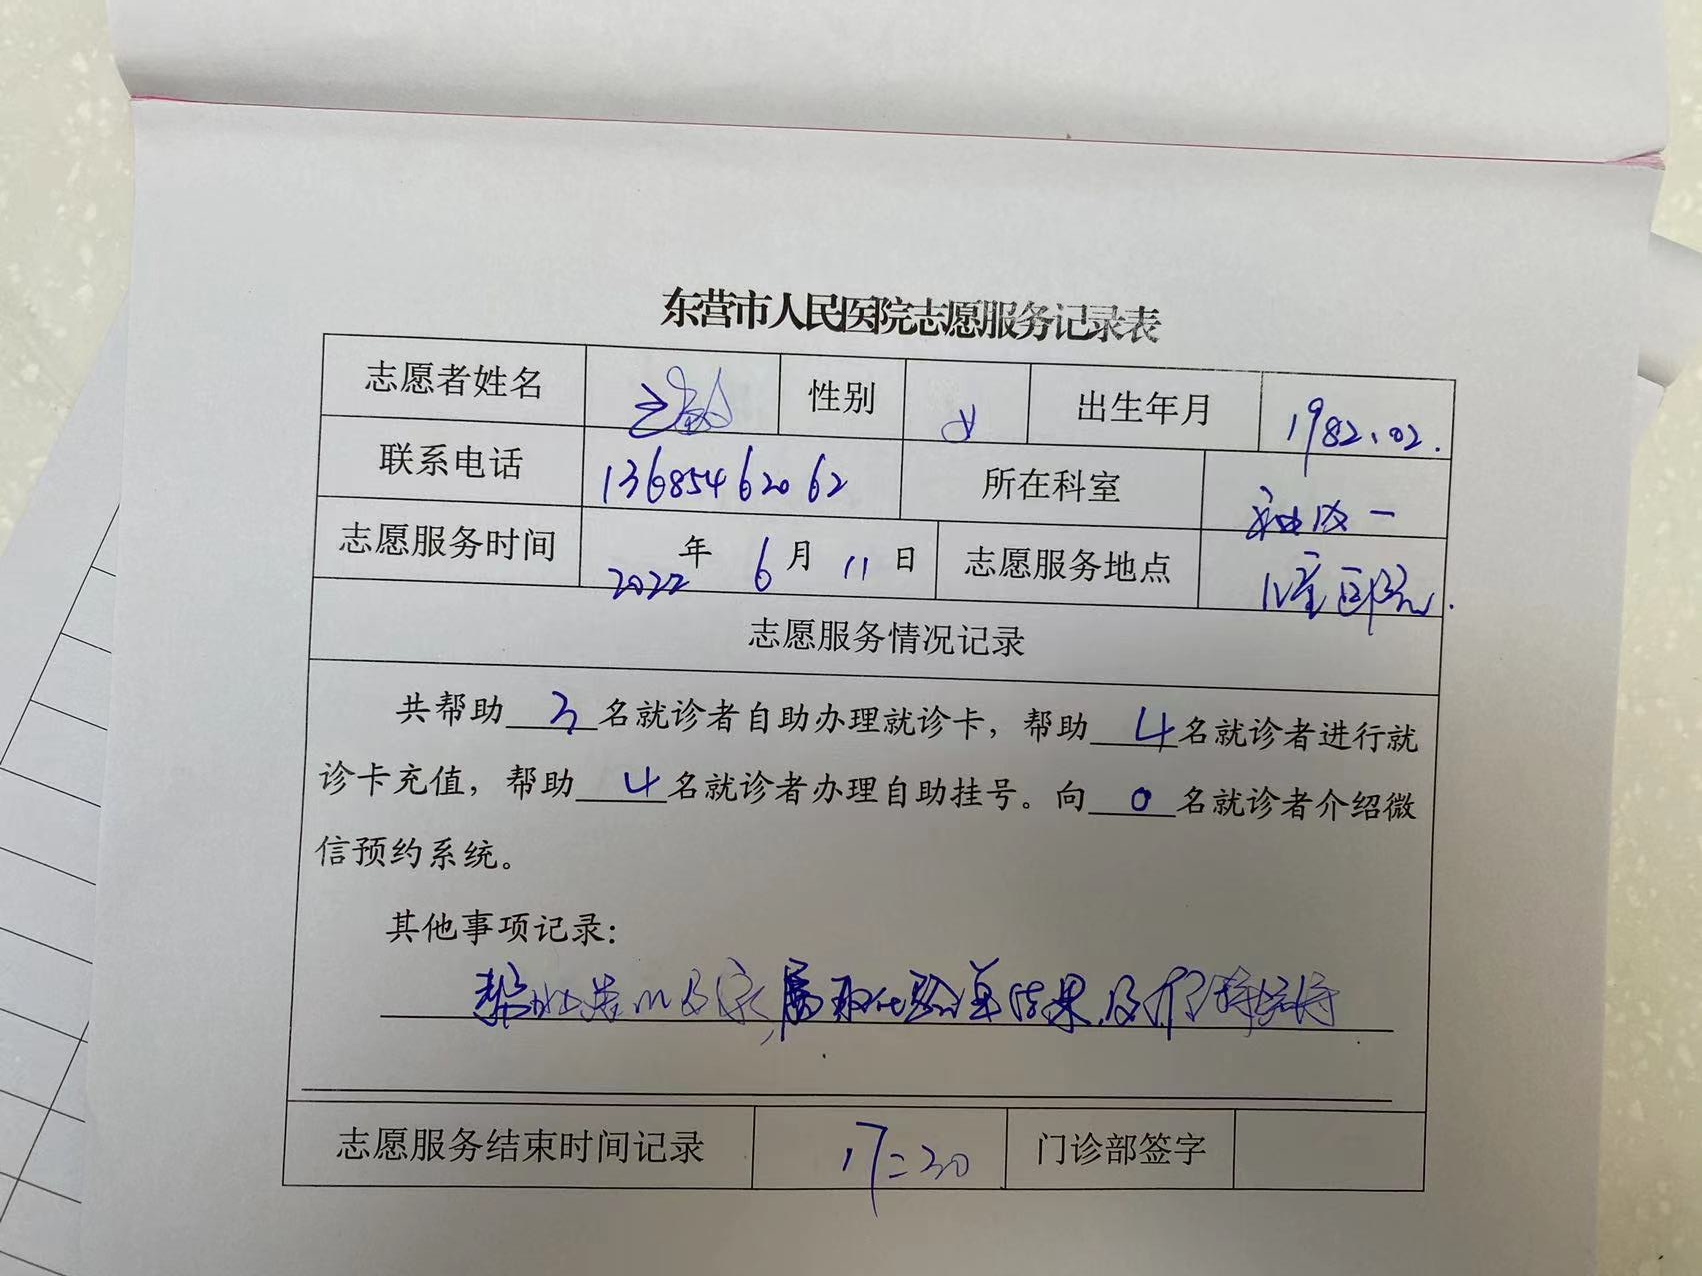 东营市人民医院志愿服务记录表
志愿者姓名 性别 女 出生年月 1982.02.
联系电话 13685462062 所在科室 神内一
志愿服务时间 2022年 6月 11日 志愿服务地点 儿童医院.
志愿服务情况记录
共帮助 3 名就诊者自助办理就诊卡，帮助 4 名就诊者进行就
诊卡充值，帮助 4 名就诊者办理自助挂号。向 0 名就诊者介绍微
信预约系统。
其他事项记录：
帮助患儿及家属取化验单结果及
志愿服务结束时间记录 17:30 门诊部签字